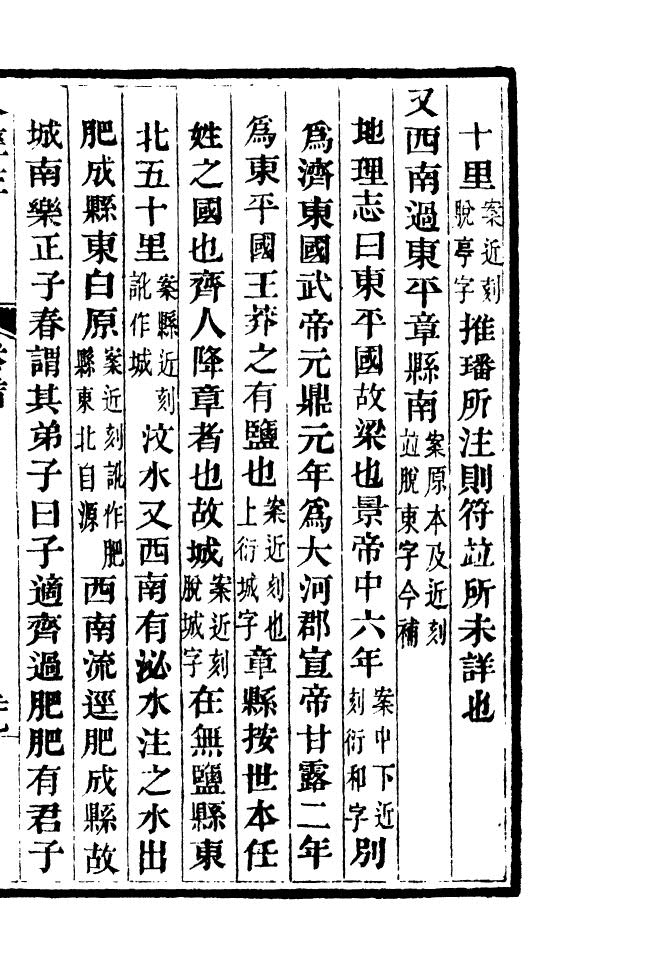 十里案近刻脫亭字推璠所注則符竝所未詳也
又西南過東平章縣南案原本及近刻竝脫東字今補
地理志曰東平國故梁也景帝中六年案中下近刻衍和字別
爲濟東國武帝元鼎元年爲大河郡宣帝甘露二年
爲東平國王莽之有鹽也案近刻也上衍城字章縣按世本任
姓之國也齊人降章者也故城案近刻脫城字在無鹽縣東
北五十里案縣近刻訛作城汶水又西南有泌水注之水出
肥成縣東白原案近刻訛作肥縣東北自源西南流逕肥成縣故
城南樂正子春謂其弟子曰子適齊過肥肥有君子